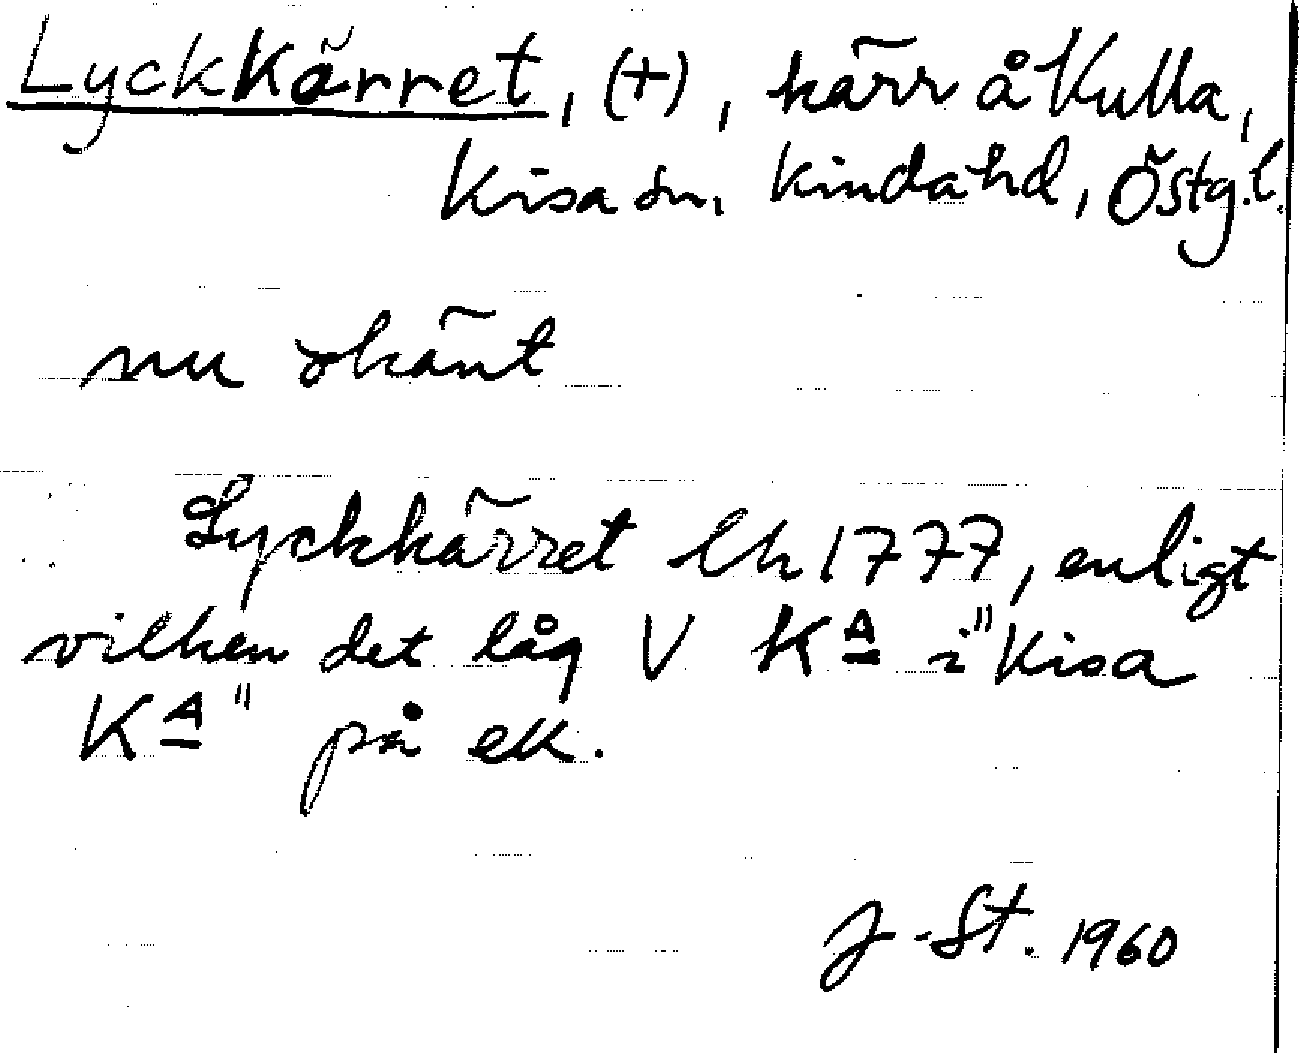 Lyckkärret, (+), kärr å Kulla,
Kisa sn, Kinda hd, Östg.l.
nu okänt
Lyckkärret lh 1777, enligt
vilken det låg V KA i "Kisa
KA" på ek.
J-St. 1960